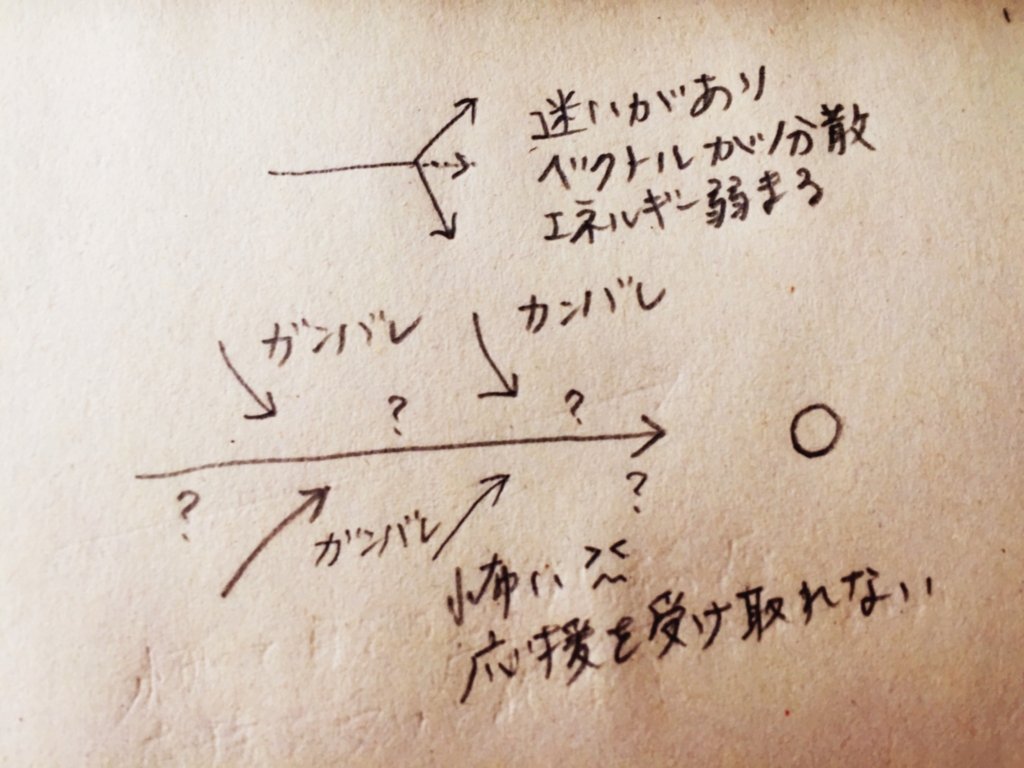 迷いがあり
ベクトルが分散
エネルギー弱まる
ガンバレ
カンバレ
?
?
?
?
ガンバレ
怖い ><
応援を受け取れない